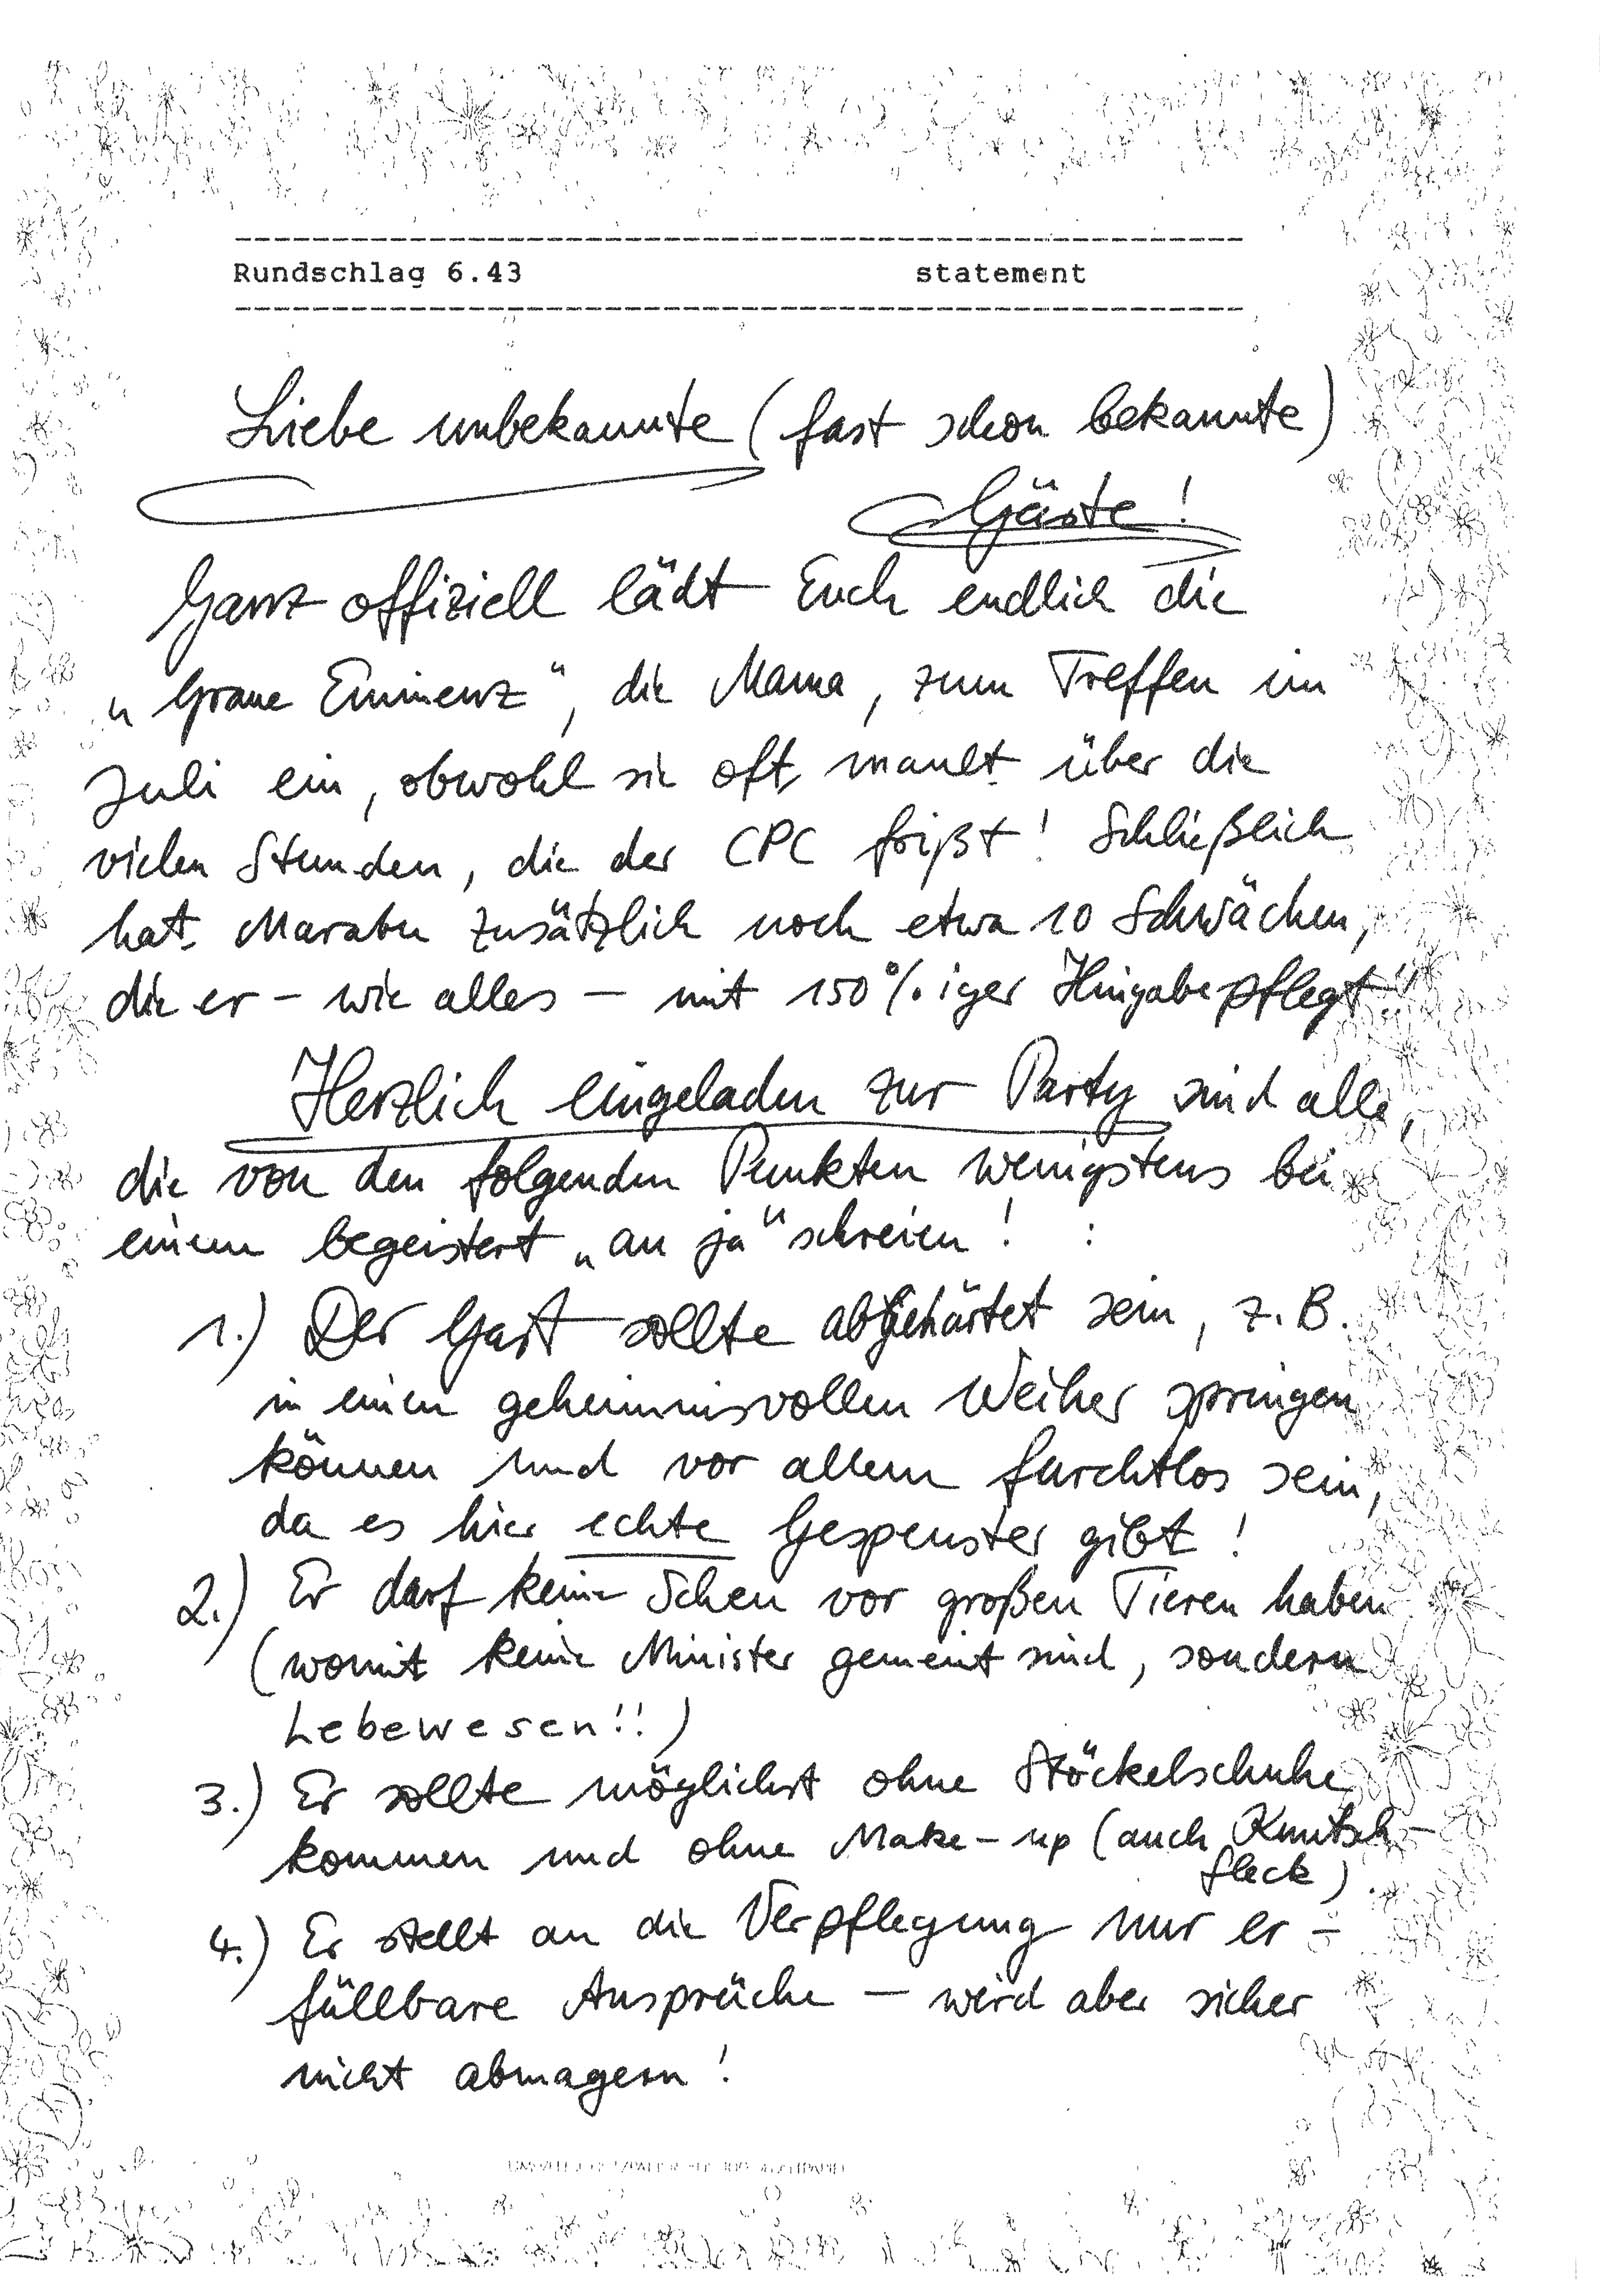 Rundschlag 6.43 statement
Liebe unbekannte (fast schon bekannte)
Gäste!
Ganz offiziell lädt Euch endlich die
„Graue Eminenz“, die Mama, zum Treffen im
Juli ein, obwohl sie oft mault über die
vielen Stunden, die der CPC frißt! Schließlich
hat Marabu zusätzlich noch etwa 10 Schwächen,
die er – wie alles – mit 150%iger Hingabe pflegt!
Herzlich eingeladen zur Party sind alle,
die von den folgenden Punkten wenigstens bei
einem begeistert „au ja“ schreien! :
1.) Der Gast sollte abgehärtet sein, z.B.
in einen geheimnisvollen Weiher springen
können und vor allem furchtlos sein,
da es hier echte Gespenster gibt!
2.) Er darf keine Scheu vor großen Tieren haben
(womit keine Minister gemeint sind, sondern
Lebewesen!!)
3.) Er sollte möglichst ohne Stöckelschuhe
kommen und ohne Make-up (auch Knutsch-
fleck).
4.) Er stellt an die Verpflegung nur er-
füllbare Ansprüche – wird aber sicher
nicht abmagern!